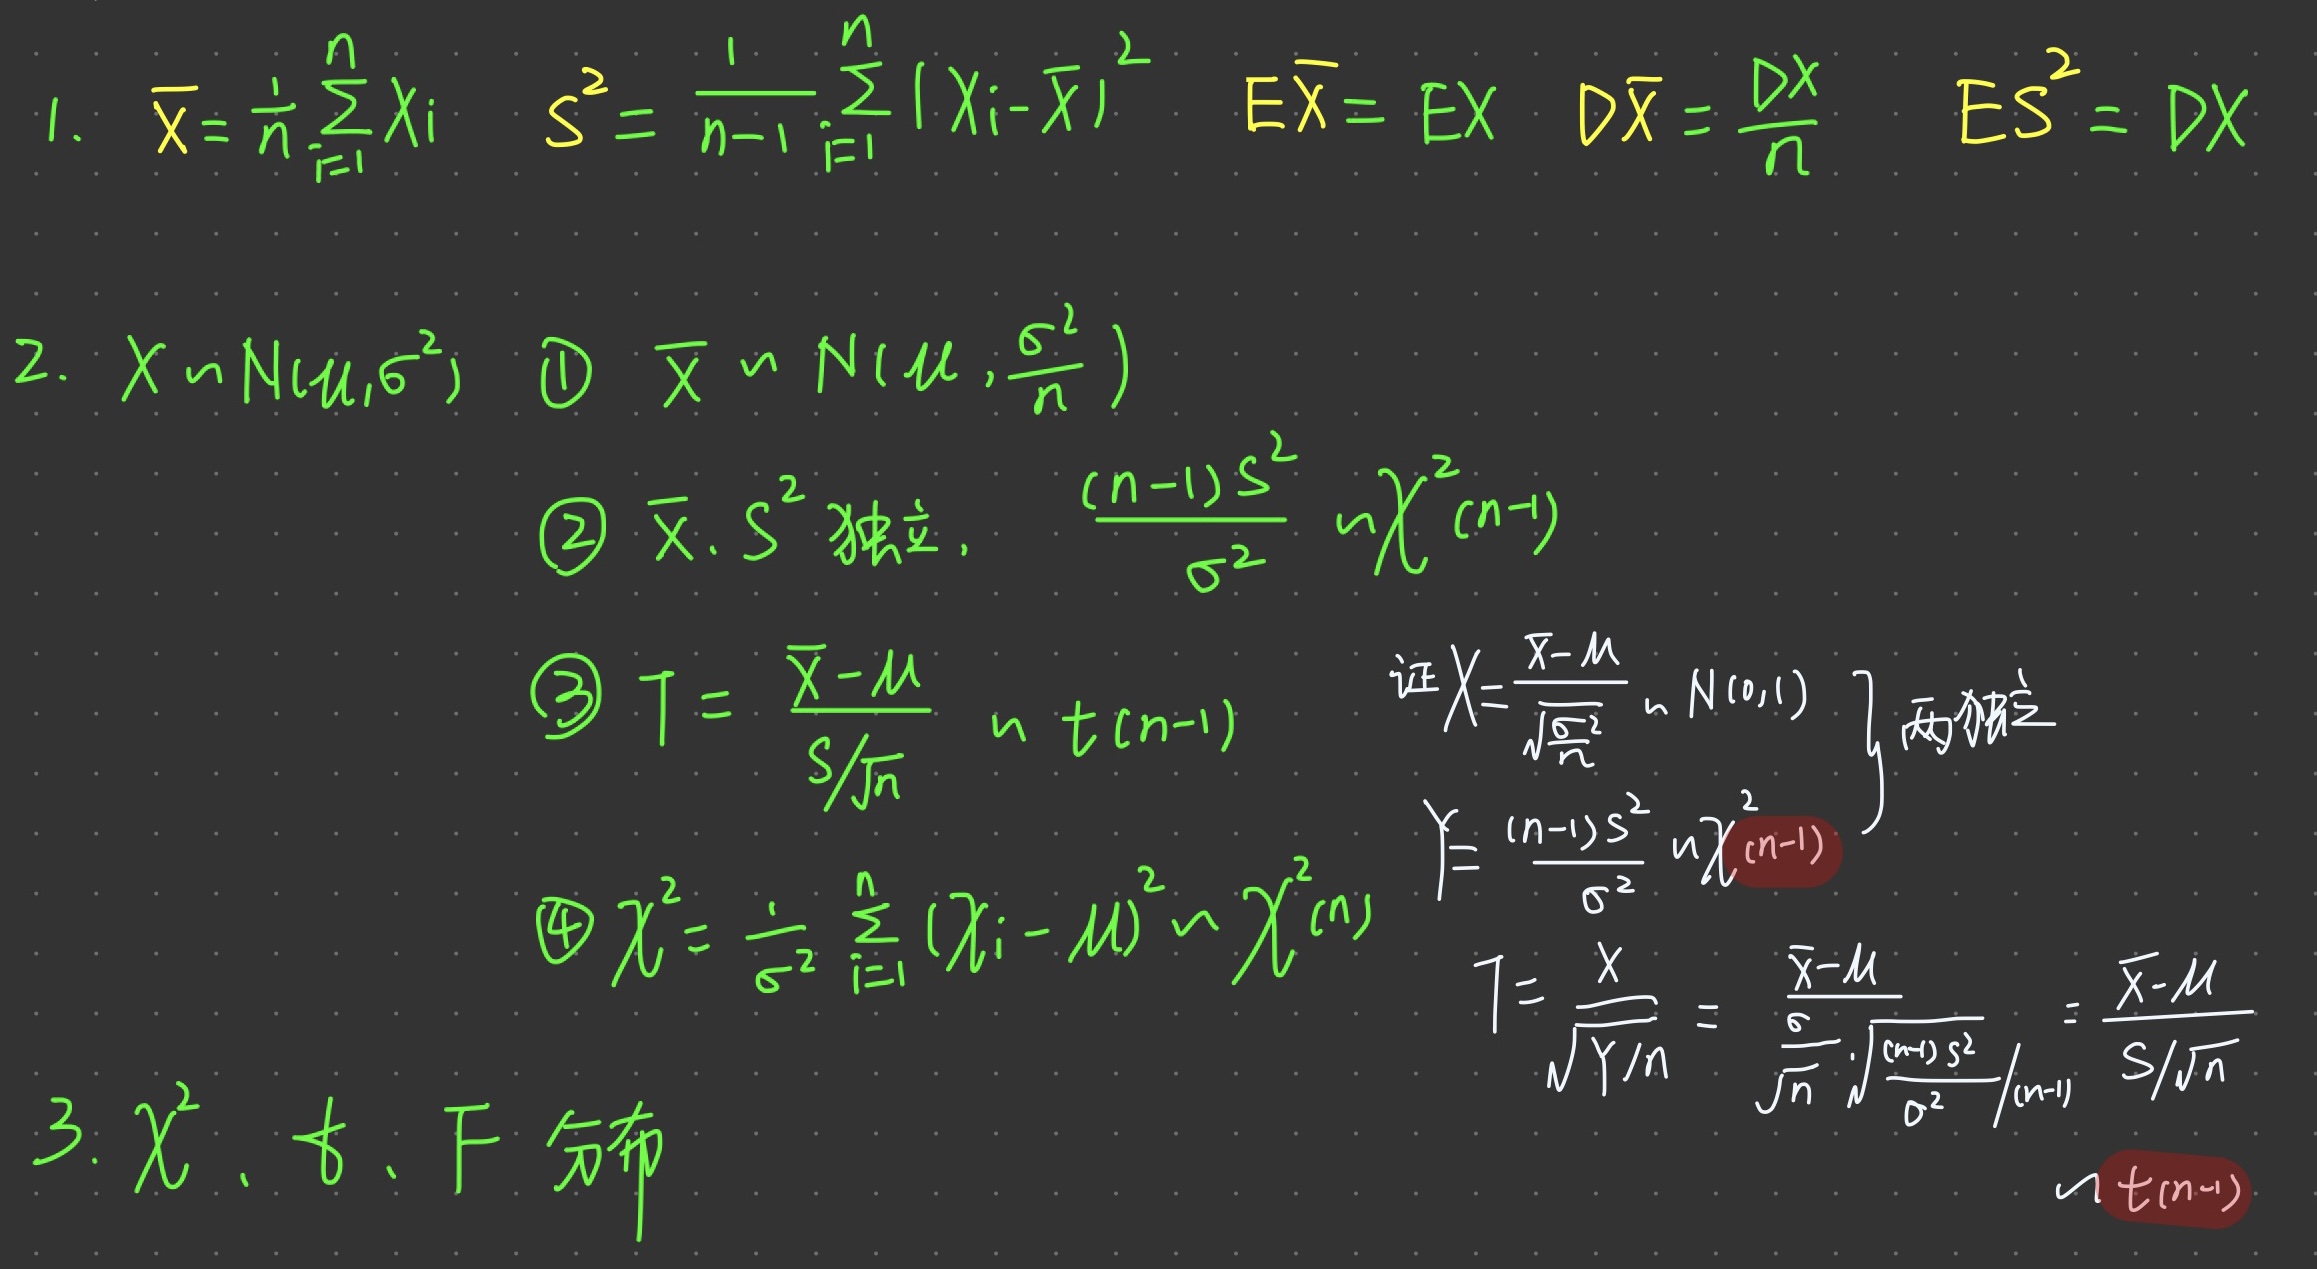 1. X̄ = 1/n ∑_{i=1}^{n} Xi   S² = 1/(n-1) ∑_{i=1}^{n} (Xi - X̄)²   EX̄ = EX   DX̄ = DX/n   ES² = DX
2. X ~ N(μ, σ²) ① X̄ ~ N(μ, σ²/n)
② X̄. S² 独立, (n-1)S²/σ² ~ χ²(n-1)
③ T = (X̄-μ)/(S/√n) ~ t(n-1)
④ χ² = 1/σ² ∑_{i=1}^{n} (Xi - μ)² ~ χ²(n)
证 X = (X̄-μ)/√(σ²/n) ~ N(0,1) } 两独立
Y = (n-1)S²/σ² ~ χ²(n-1)
T = X/√(Y/n) = (X̄-μ)/(σ/√n · √((n-1)S²/σ² /(n-1))) = (X̄-μ)/(S/√n)
~ t(n-1)
3. χ²、t、F 分布